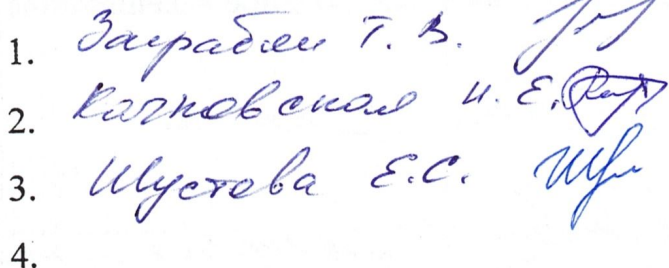 1. Заграбян Т. В.
2. Качковская И. Е.
3. Шустова Е.С.
4.